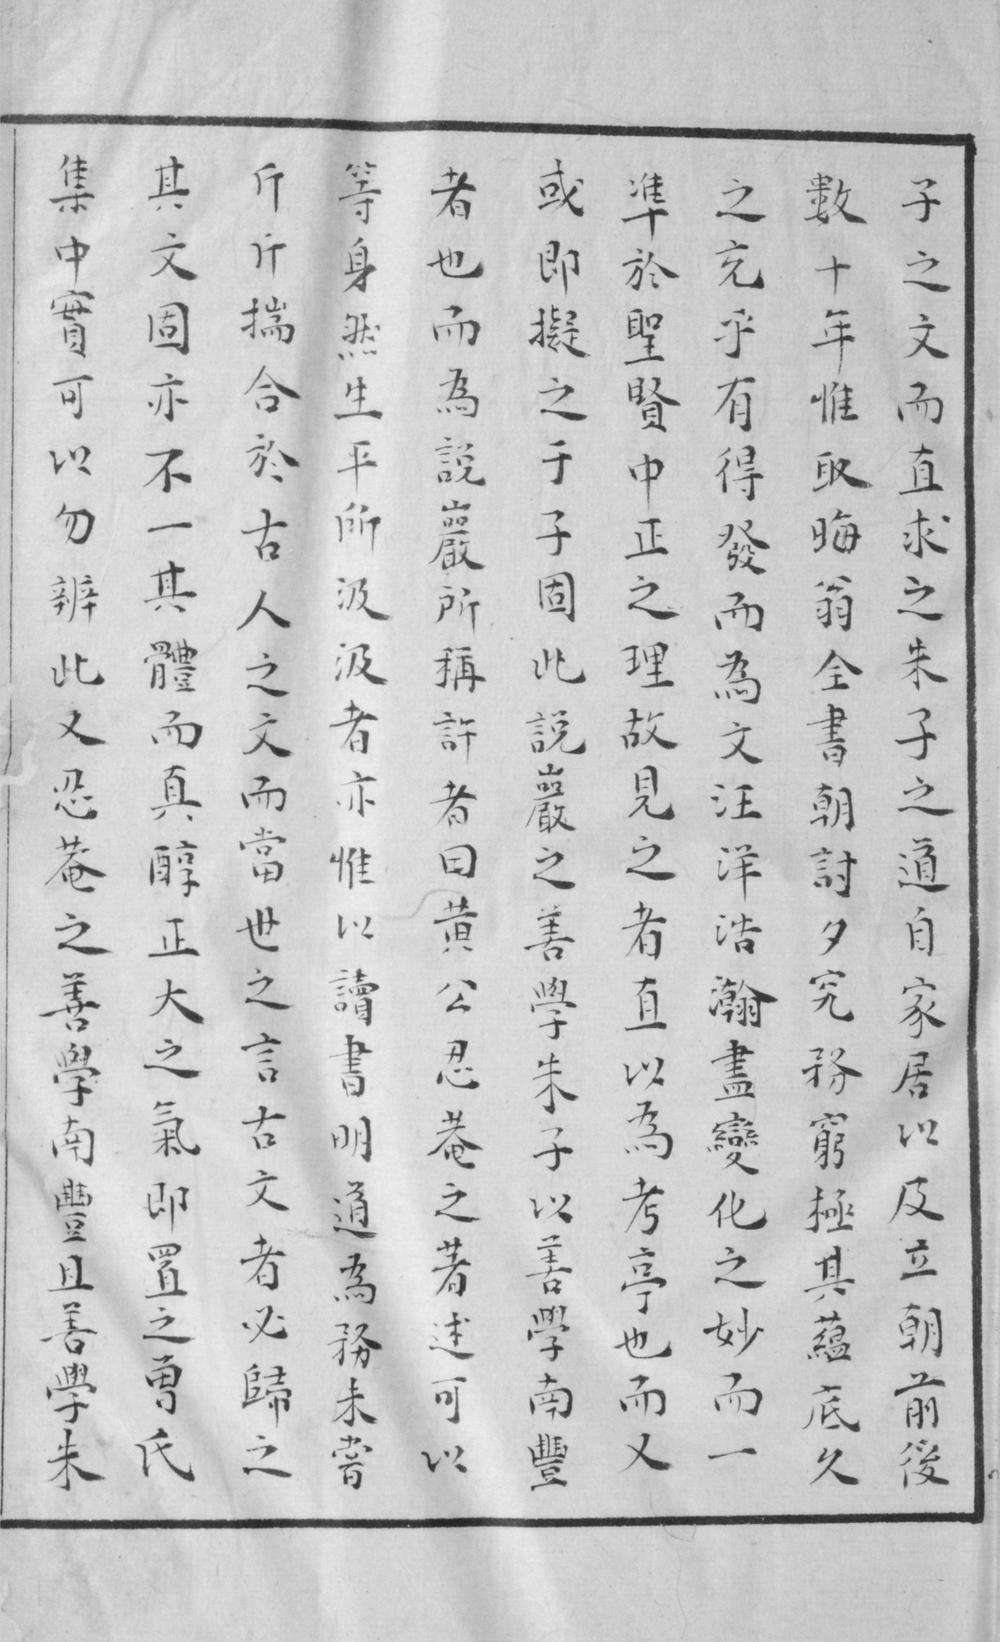 子之文而直求之朱子之道自家居以及立朝前後
數十年惟取晦翁全書朝討夕究務窮極其蘊底久
之充乎有得發而為文汪洋浩瀚盡變化之妙而一
準於聖賢中正之理故見之者直以為考亭也而又
或即擬之于子固此說巖之善學朱子以善學南豐
者也而為說巖所稱許者曰黃公忍菴之著述可以
等身然生平所汲汲者亦惟以讀書明道為務未嘗
斤斤揣合於古人之文而當世之言古文者必歸之
其文固亦不一其體而真醇正大之氣即置之曾氏
集中實可以勿辨此又忍菴之善學南豐且善學朱